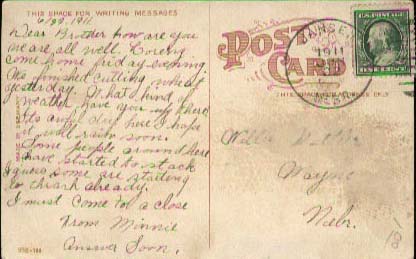 THIS SPACE FOR WRITING MESSAGES
6/29. 1911
Dear Brother how are you
we are all well.
come home friday evening
Pa finished cutting wheat
yesterday. What kind of
weather have you up there
Its awful dry here I hope
it will rain soon.
Some people around here
have started to stack
I guess some are starting
to thrash already.
I must come to a close
From Minnie
Answer Soon.
POST
CARD
1911
NEBR
Wayne
Nebr.